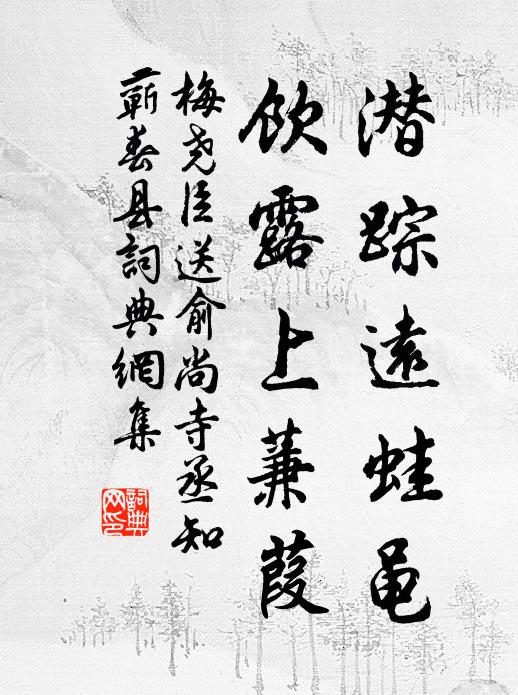 潜踪遠蛙黽
飲露上蒹葭
梅尧臣送俞尚寺丞知
蕲春县詞典網集
詞典
网印